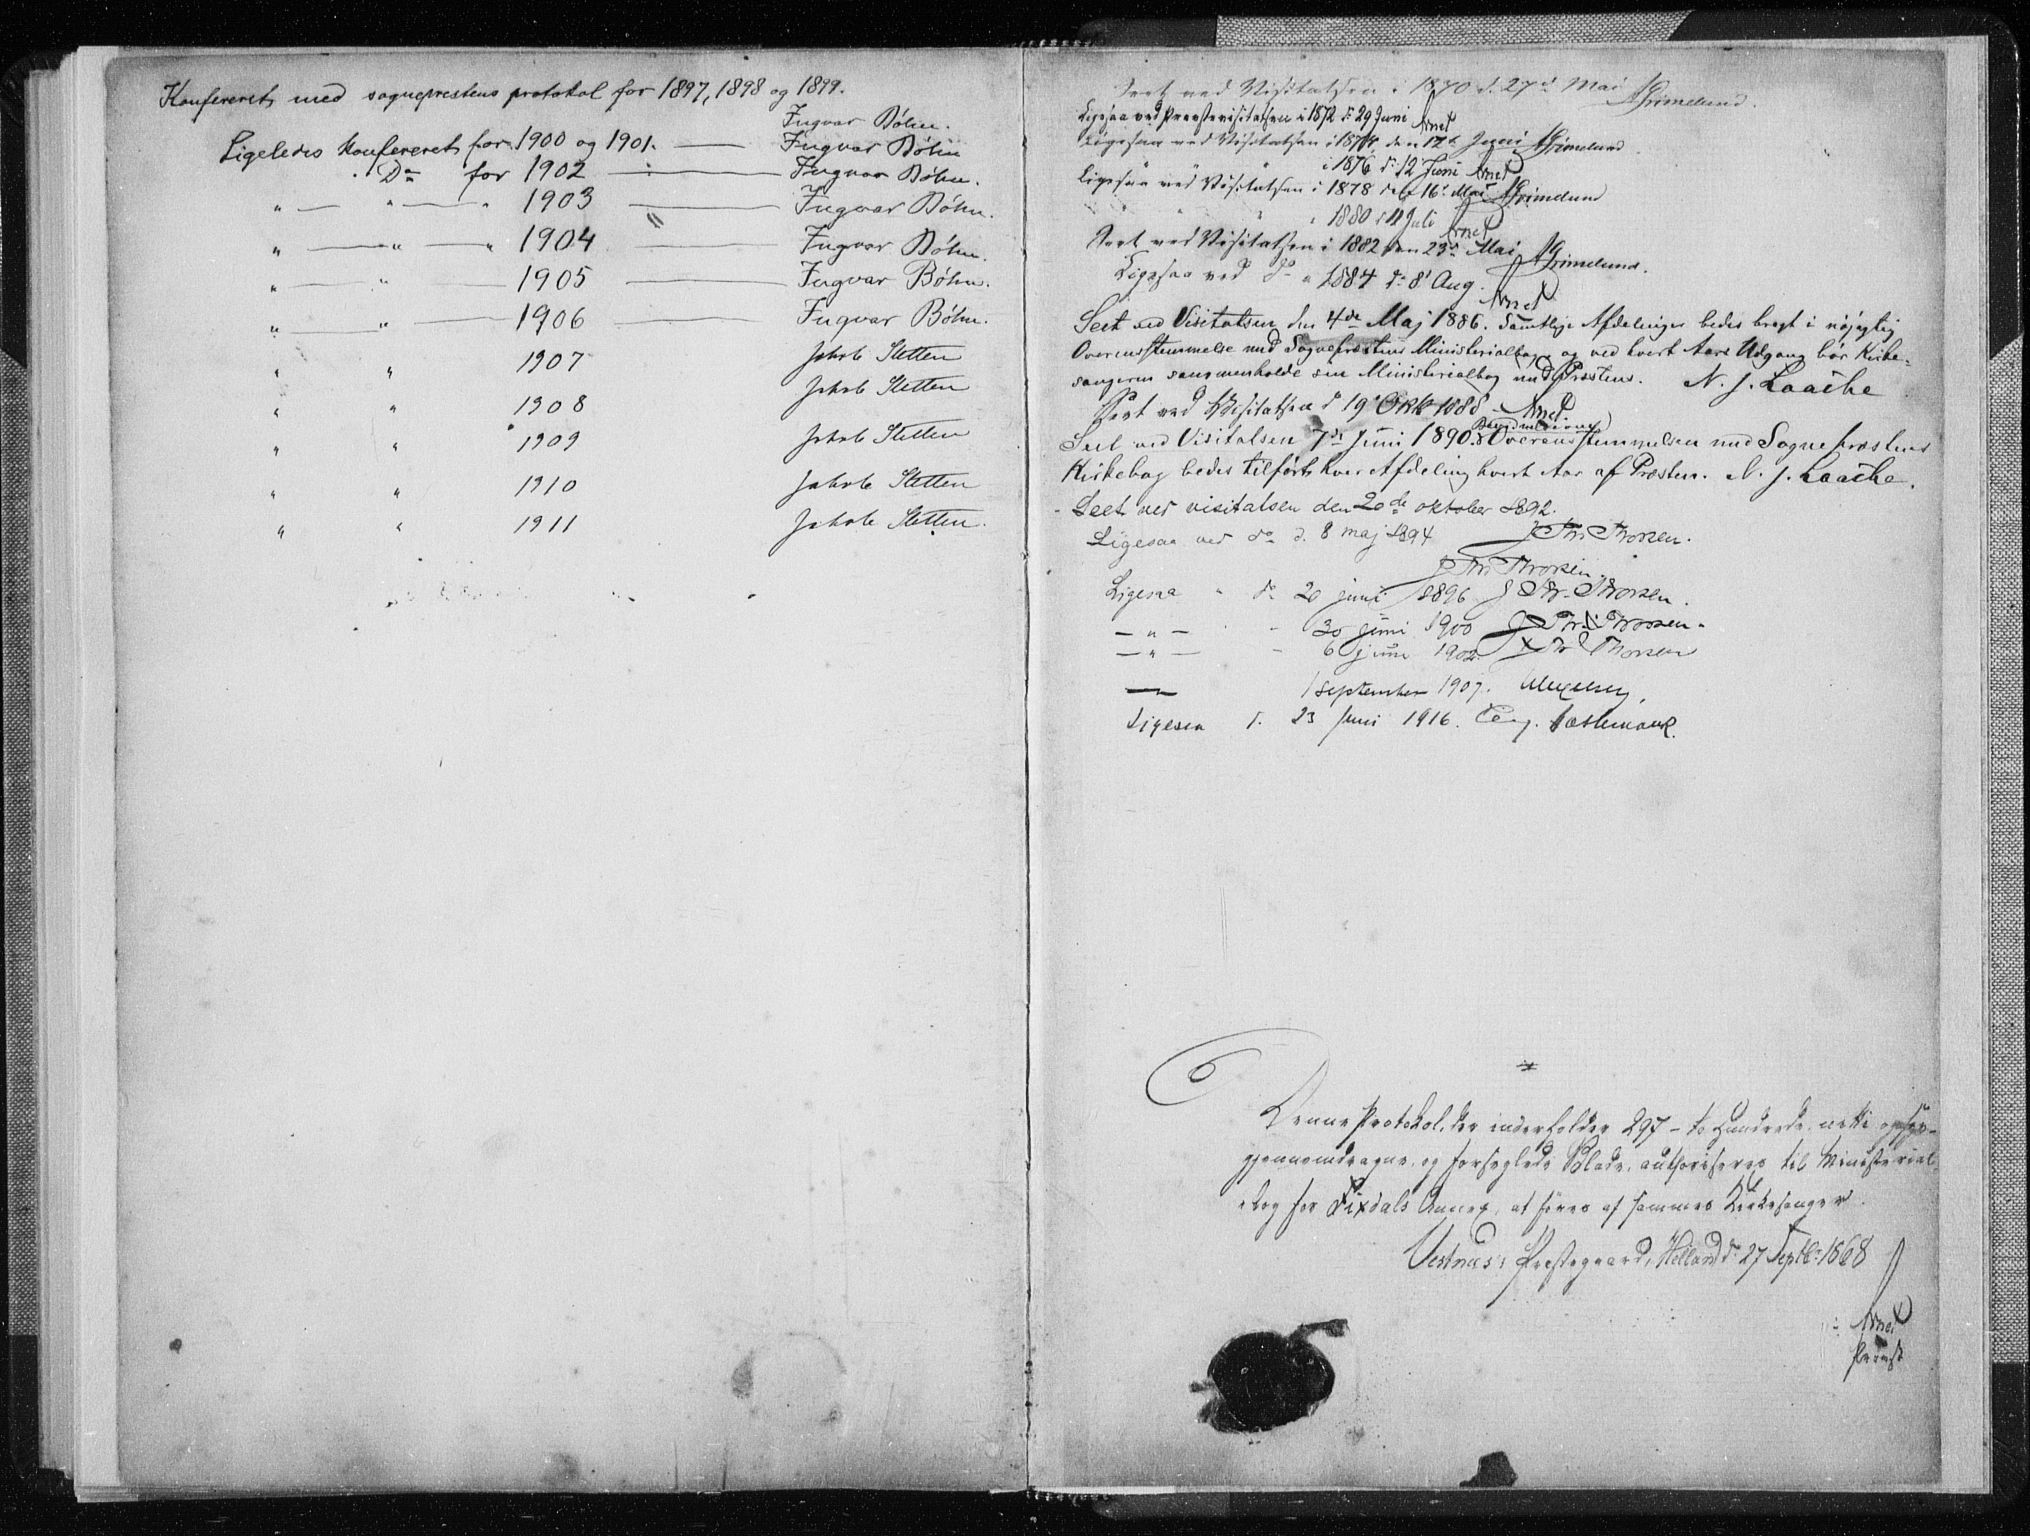 Konfereret med sogneprestens protokol for 1897, 1898 og 1899.
Ingvar Bøhn.
Ligeledes konfereret for 1900 og 1901. — Ingvar Bøhn
Do for 1902 — Ingvar Bøhn.
" — " — " 1903 — Ingvar Bøhn.
" — " — " 1904 — Ingvar Bøhn.
" — " — 1905 — Ingvar Bøhn.
" — " — 1906 — Ingvar Bøhn.
" " 1907 Jakob Stetten
" " 1908 Jakob Stetten
" " 1909 Jakob Stetten
" " 1910 Jakob Stetten
" " 1911 Jakob Stetten.
Seet ved Visitatsen i 1870 d. 27d Mai AGrimelund.
Ligesaa ved Provstevisitatsen i 1872 d. 29 Juni Arnet
Ligesaa ved Visitatsen i 1874 den 12t Juni AGrimelund
" i 1876 d. 12 Juni Arnet
Ligesaa ved Visitatsen i 1878 den 16t Mai AGrimelund
" " " i 1880 d. 11 Juli Arnet
Seet ved Visitatsen i 1882 den 23d Mai AGrimelund.
Ligesaa ved do " 1884 d. 8 Aug. Arnet
Seet ved Visitatsen den 4de Maj 1886. Samtlige Afdelinger bedes bragt i nöjagtig
Overensstemmelse med Sognepræstens Ministerialbog, og ved hvert Aars Udgang bör Kirke-
sangeren sammenholde sin Ministerialbog med Præstens. N. J. Laache
Seet ved Visitatsen d 19 Okt 1888 - Arnet.
Seet ved Visitatsen 7de Juni 1890. Overensstemmelsen med Sognepræstens
Kirkebog bedes tilfört hver Afdeling hvert Aar af Præsten. N. J. Laache.
Seet ved visitatsen den 20de oktober 1892.
Ligesaa ved do d. 8 maj 1894 J Chr Thorsen.
J Chr Thorsen.
Ligesaa " do 20 juni 1896 J Chr. Thorsen.
— " — - 30 juni 1900 J Chr. Thorsen.
— " — - 6 juni 1902. J Chr Thorsen
— 1 september 1907.
Ligesaa d. 23 Juni 1916. Eng. Hæstmark.
Denne Protokol, der indeholder 297 - to Hundrede, nitti og syv -
gjennemdragne og forseglede Blade, authoriseres til Ministerial
bog for Fixdals Annex, at föres af sammes Kirkesanger.
Vestnæs Præstegaard, Helland d. 27 Septbr 1868
Arnet
Provst